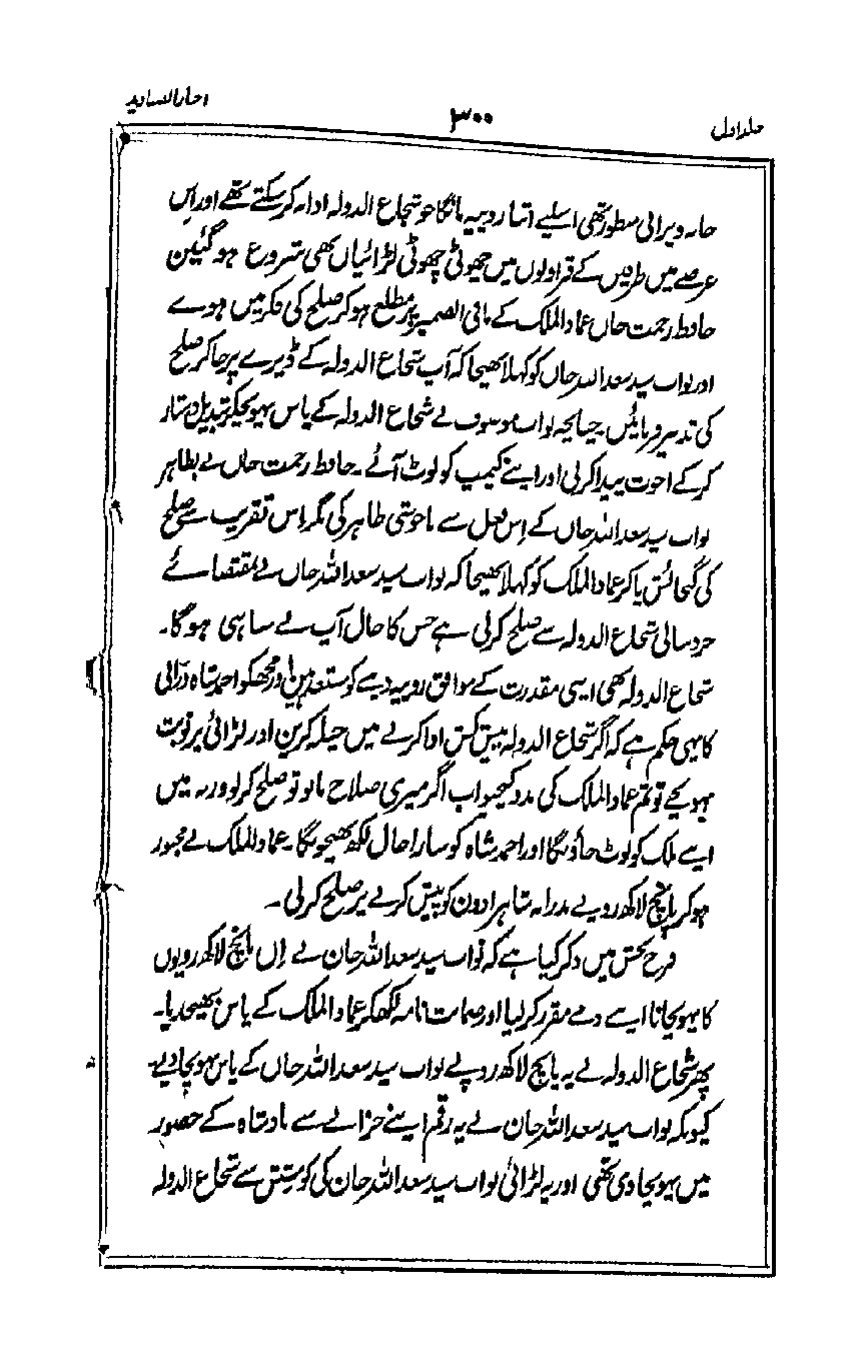 اخبار الصنادید
۳۰۰
جلد اول
خانہ ویرانی منظور تھی اسلیے اتنا روپیہ مانگا جو شجاع الدولہ ادا نہ کر سکتے تھے اور اس
عرصے میں طرفین کے قراولوں میں چھوٹی چھوٹی لڑائیاں بھی شروع ہوگئین
حافظ رحمت خاں عماد الملک کے مافی الضمیر پر مطلع ہوکر صلح کی فکر میں ہوے
اور نواب سید سعد اللہ خاں کو کہلا بھیجا کہ آپ شجاع الدولہ کے ڈیرے پر جاکر صلح
کی تدبیر فرمائیں۔ چنانچہ نواب موصوف نے شجاع الدولہ کے پاس پہونچکر تبدیل دستار
کرکے اخوت پیدا کرلی اور اپنے کیمپ کو لوٹ آئے۔ حافظ رحمت خاں نے بظاہر
نواب سید سعد اللہ خاں کے اس فعل سے ناخوشی ظاہر کی مگر اس تقریب سے صلح
کی گنجائش پاکر عماد الملک کو کہلا بھیجا کہ نواب سید سعد اللہ خاں نے بمقتضائے
خرد سالی شجاع الدولہ سے صلح کرلی ہے جس کا حال آپ نے سنا ہی ہوگا۔
شجاع الدولہ بھی اپنی مقدرت کے موافق روپیہ دینے کو مستعد ہیں اور مجھکو احمد شاہ درانی
کا یہی حکم ہے کہ اگر شجاع الدولہ پیش کش ادا کرنے میں حیلہ کرین اور لڑائی پر نوبت
پہونچے تو تم عماد الملک کی مدد کیجیو اب اگر میری صلاح مانو تو صلح کرلو ورنہ میں
اپنے ملک کو لوٹ جاؤنگا اور احمد شاہ کو سارا حال لکھ بھیجونگا۔ عماد الملک نے مجبور
ہوکر پانچ لاکھ روپے نذرانہ شاہزادون کو پیش کرنے پر صلح کرلی۔
فرح بخش میں ذکر کیا ہے کہ نواب سید سعد اللہ خان نے ان پانچ لاکھ روپوں
کا پہونچانا اپنے ذمے مقرر کرلیا اور ضمانت نامہ لکھکر عماد الملک کے پاس بھیجدیا۔
پھر شجاع الدولہ نے یہ پانچ لاکھ روپے نواب سید سعد اللہ خاں کے پاس پہونچا دیے
کیونکہ نواب سید سعد اللہ خان نے یہ رقم اپنے خزانے سے بادشاہ کے حضور
میں پہونچا دی تھی اور یہ لڑائی نواب سید سعد اللہ خان کی کوشش سے شجاع الدولہ